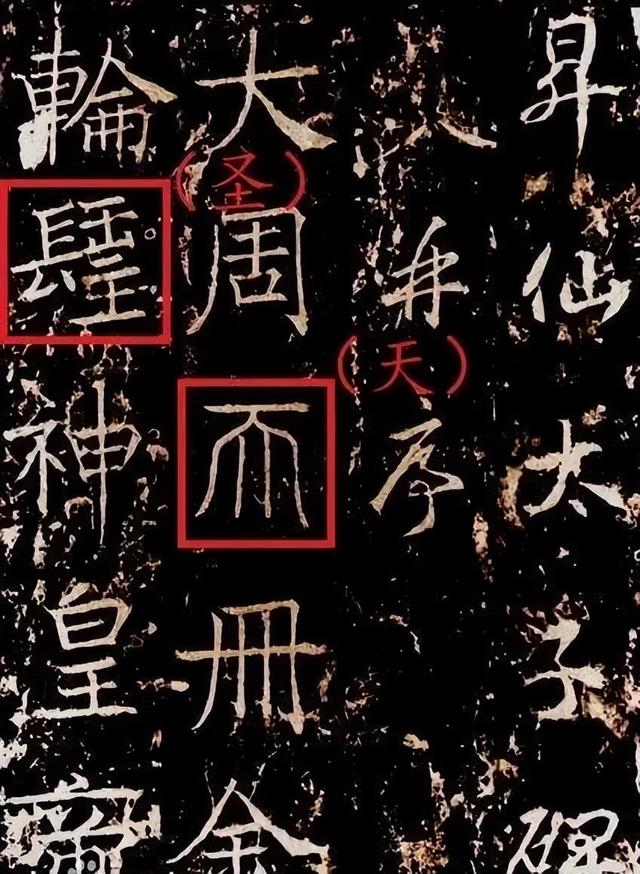 昇仙太子碑
并序
大周𠀑冊金
輪𨲢神皇帝
(圣)
(天)